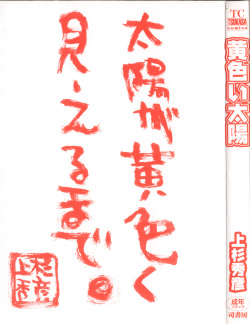 太陽が黄色く
見えるまで。
上杉秀彦
TC
TSUKASA
COMICS
黄色い太陽
上杉秀彦
成年
コミック
司書房